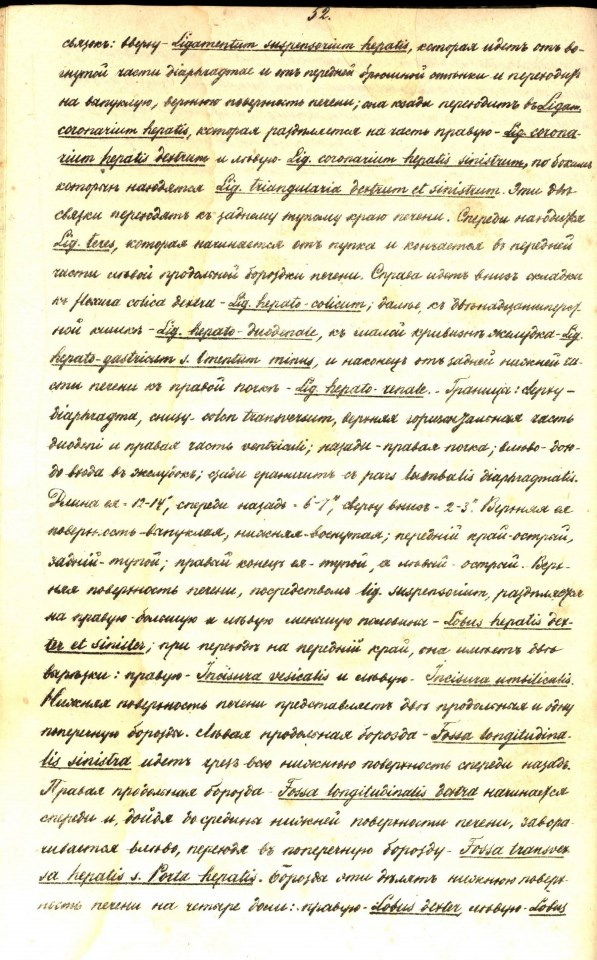 52.
связокъ: вверху - Ligamentum suspensorium hepatis, которая идетъ отъ во-
гнутой части diaphragmae и отъ передней брюшной стѣнки и переходитъ
на выпуклую, верхнюю поверхность печени; она кзади переходитъ въ Ligam.
coronarium hepatis, которая раздѣляется на часть правую - Lig. corona-
rium hepatis dextrum и лѣвую - Lig. coronarium hepatis sinistrum, по бокамъ
которых находятся Lig. triangularia dextrum et sinistrum. Эти двѣ
связки переходятъ къ заднему тупому краю печени. Спереди находится
Lig. teres, которая начинается отъ пупка и кончается въ передней
части лѣвой продольной бороздки печени. Справа идетъ внизъ складка
къ flexura colica dextra - Lig. hepato-colicum; далѣе, къ двѣнадцатиперст-
ной кишкѣ - Lig. hepato-duodenale, къ малой кривизнѣ желудка - Lig.
hepato-gastricum s. Omentum minus, и наконецъ отъ задней нижней ча-
сти печени къ правой почкѣ - Lig. hepato-renale. - Граница: сверху -
diaphragma, снизу - colon transversum, верхняя горизонтальная часть
duodeni и правая часть ventriculi; назади - правая почка; влѣво - до-
до входа въ желудокъ; сзади граничитъ съ pars lumbalis diaphragmatis.
Длина ея - 12-14", спереди назадъ - 6-7", сверху внизъ - 2-3". Верхняя ея
поверхность - выпуклая, нижняя - вогнутая; передній край - острый,
задній - тупой; правый конецъ ея - тупой, а лѣвый - острый. Верх-
няя поверхность печени, посредствомъ lig. suspensorium, раздѣляется
на правую большую и лѣвую меньшую половина - Lobus hepatis dex-
ter et sinister; при переходѣ на передній край, она имѣетъ двѣ
вырѣзки: правую - Incisura vesicalis и лѣвую - Incisura umbilicalis.
Нижняя поверхность печени представляетъ двѣ продольныя и одну
поперечную борозды. Лѣвая продольная борозда - Fossa longitudina-
lis sinistra идетъ чрезъ всю нижнюю поверхность спереди назадъ.
Правая продольная борозда - Fossa longitudinalis dextra начинается
спереди и, дойдя до средины нижней поверхности печени, завора-
чивается влѣво, переходя въ поперечную борозду - Fossa transver-
sa hepatis s. Porta hepatis. Борозды эти дѣлятъ нижнюю поверх-
ность печени на четыре доли: правую - Lobus dexter, лѣвую - Lobus